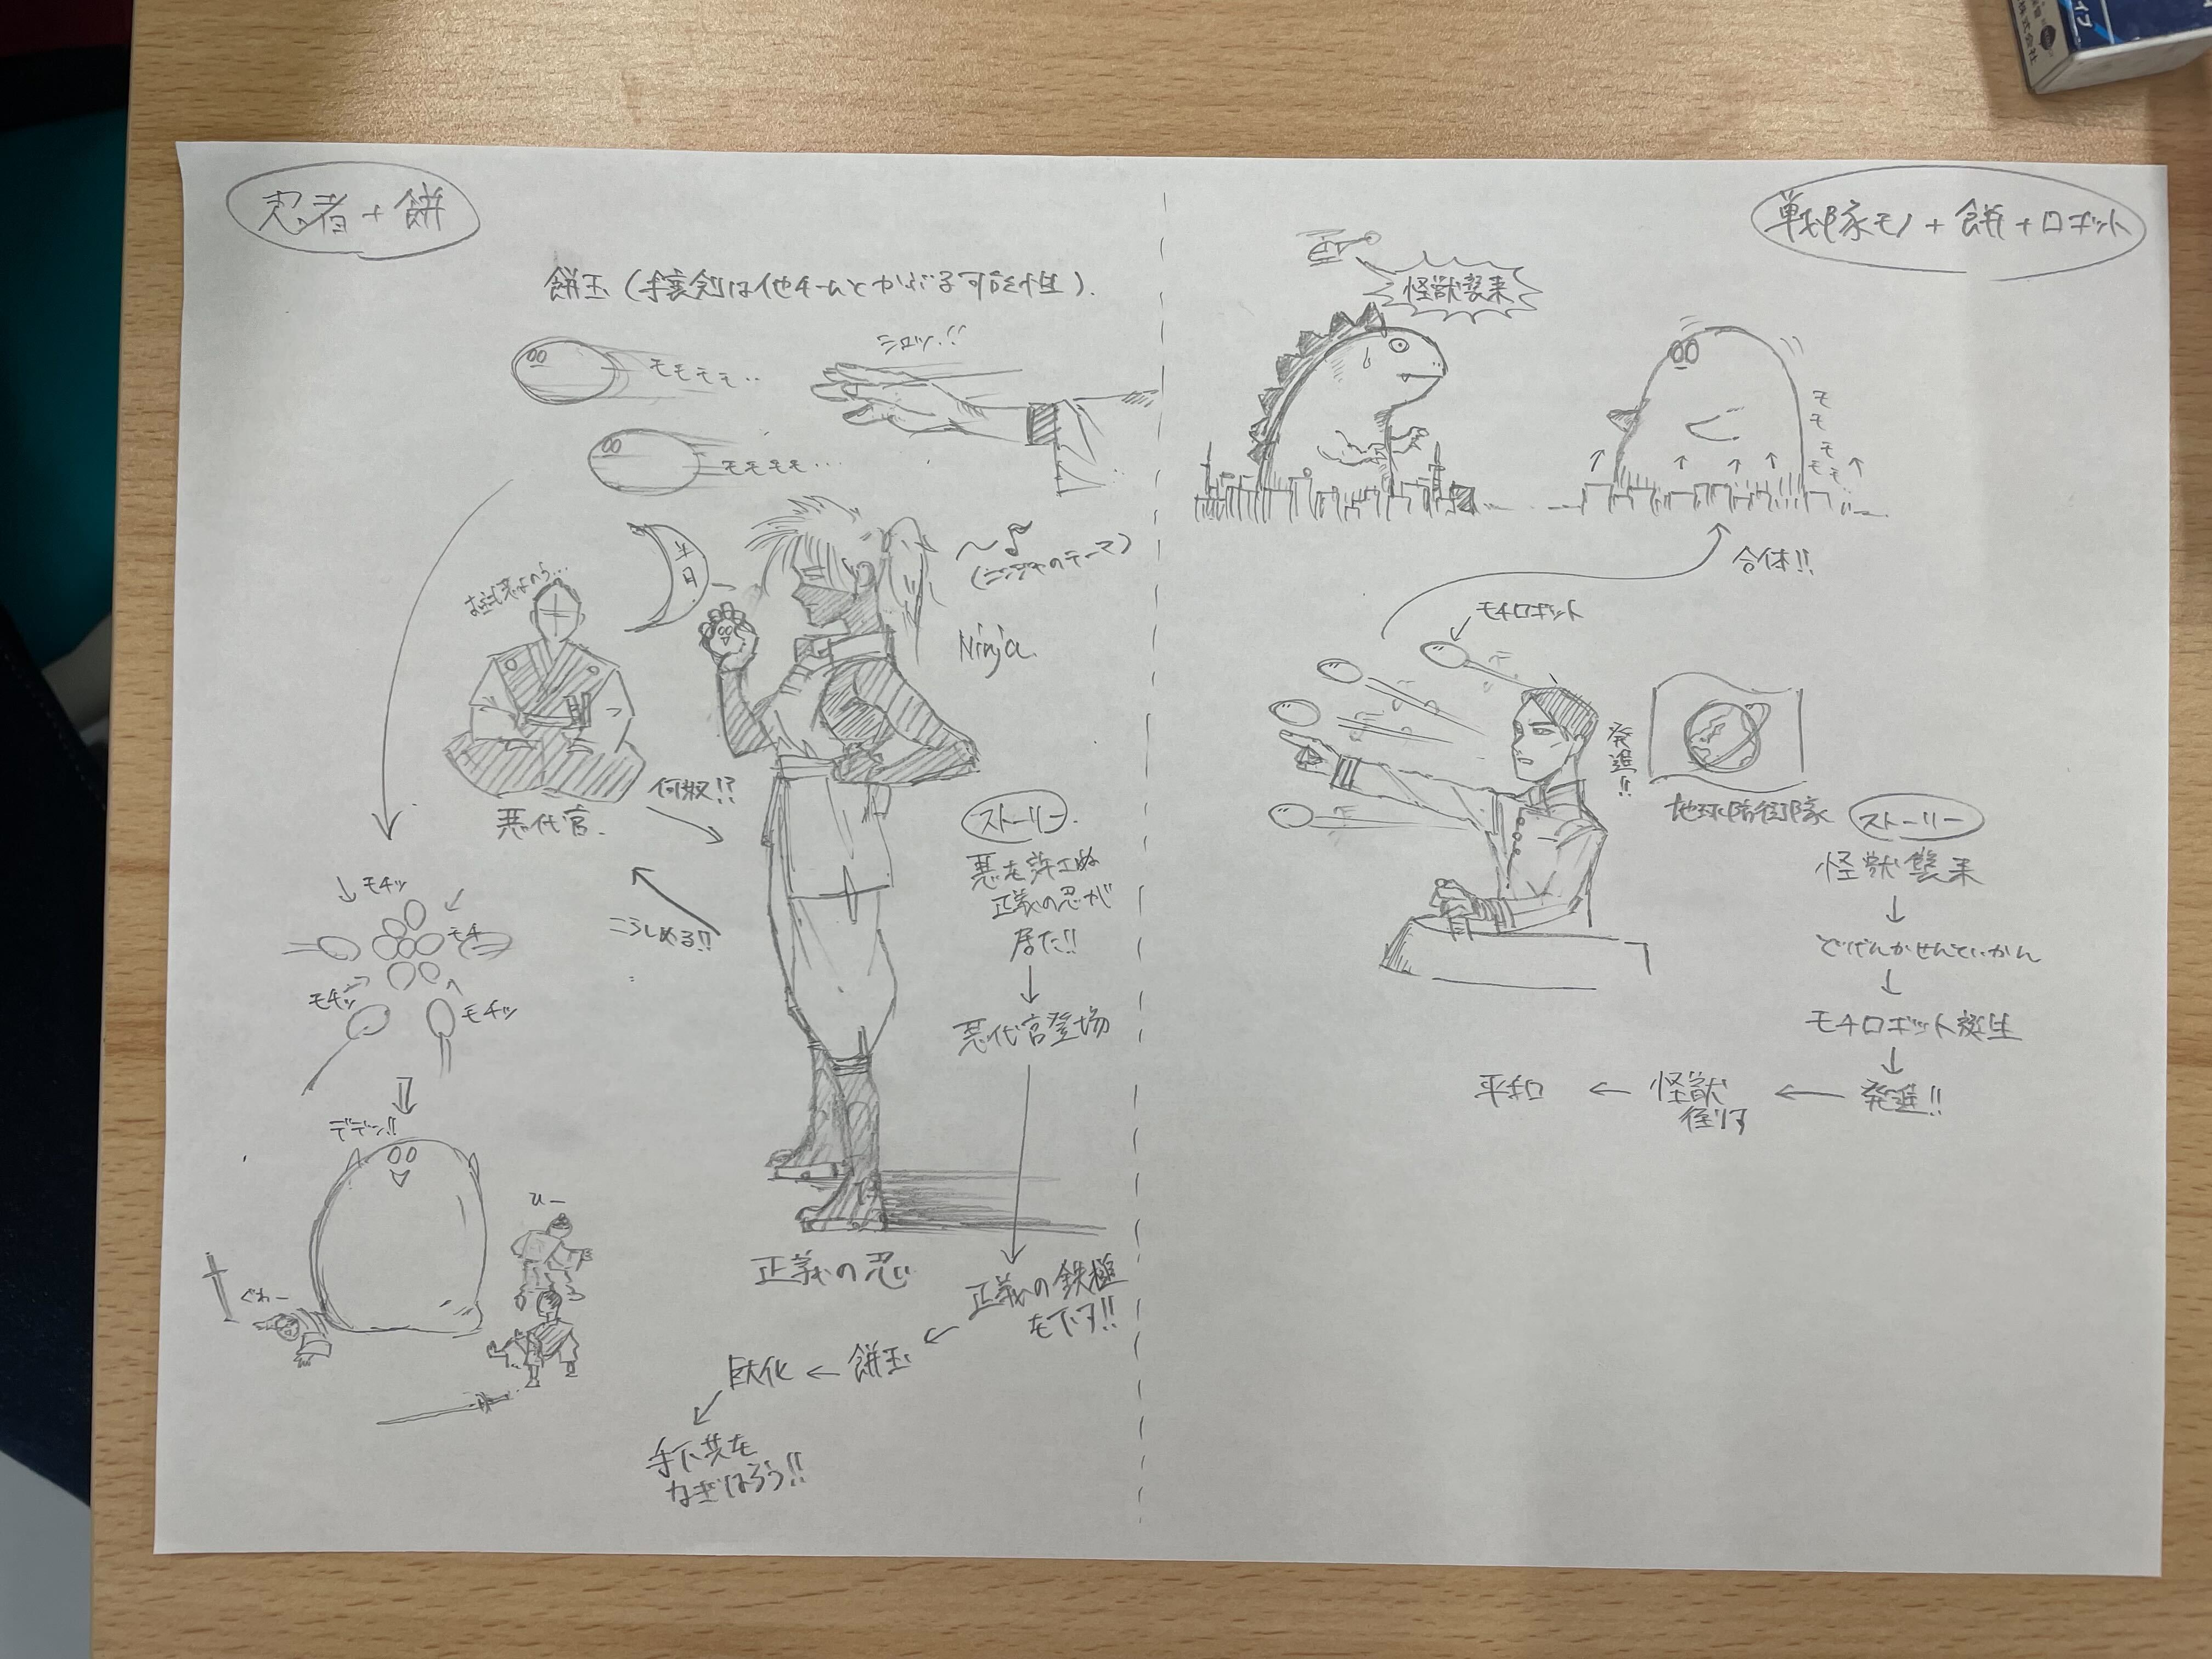 忍者+餅
餅玉(手裏剣は他チームとかぶる可能性).
モモモモ‥
シュッ!!
モモモモ…
半月
〜♪
(ニンジャのテーマ)
Ninja.
悪代官.
何奴!?
こらしめる!!
モチッ
モチ
モチッ
モチッ
デデン!!
ひー
ぐわー
正義の忍
ストーリー
悪を許さぬ
正義の忍が
居た!!
↓
悪代官登場
↓
正義の鉄極
を下す!!
餅玉
←
巨大化
手下共を
なぎはらう!!
戦隊モノ+餅+ロボット
怪獣襲来
モモモモモ
合体!!
モチロボット
発進!!
地球防衛隊
ストーリー
怪獣襲来
↓
どげんかせんといかん
↓
モチロボット誕生
↓
発進!!
←
怪獣
倒す
←
平和
株式会社